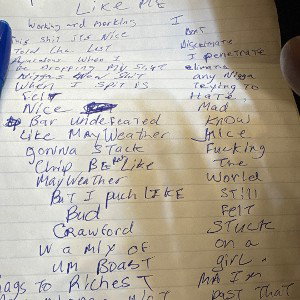 Like ME
Working and Working
This Shit Its Nice
Told the Last
When I
Dropping My Shit
Niggas Know Shit
When I Spit Is
Felt
Nice
Bar undefeared
Like MayWeather
gonna Stack
Chip Be Like
MayWeather
But I puch LIKE
Bud
Crawford
W a mix of
um Boast
Rags to Riches
I
Beat
Discrimate
I penetrate
any Nigga
Trying to
Hate
Mad
Know
Nice
Fucking
The
World
Still
Felt
Stuck
on a
girl
Ma I'm
Past That